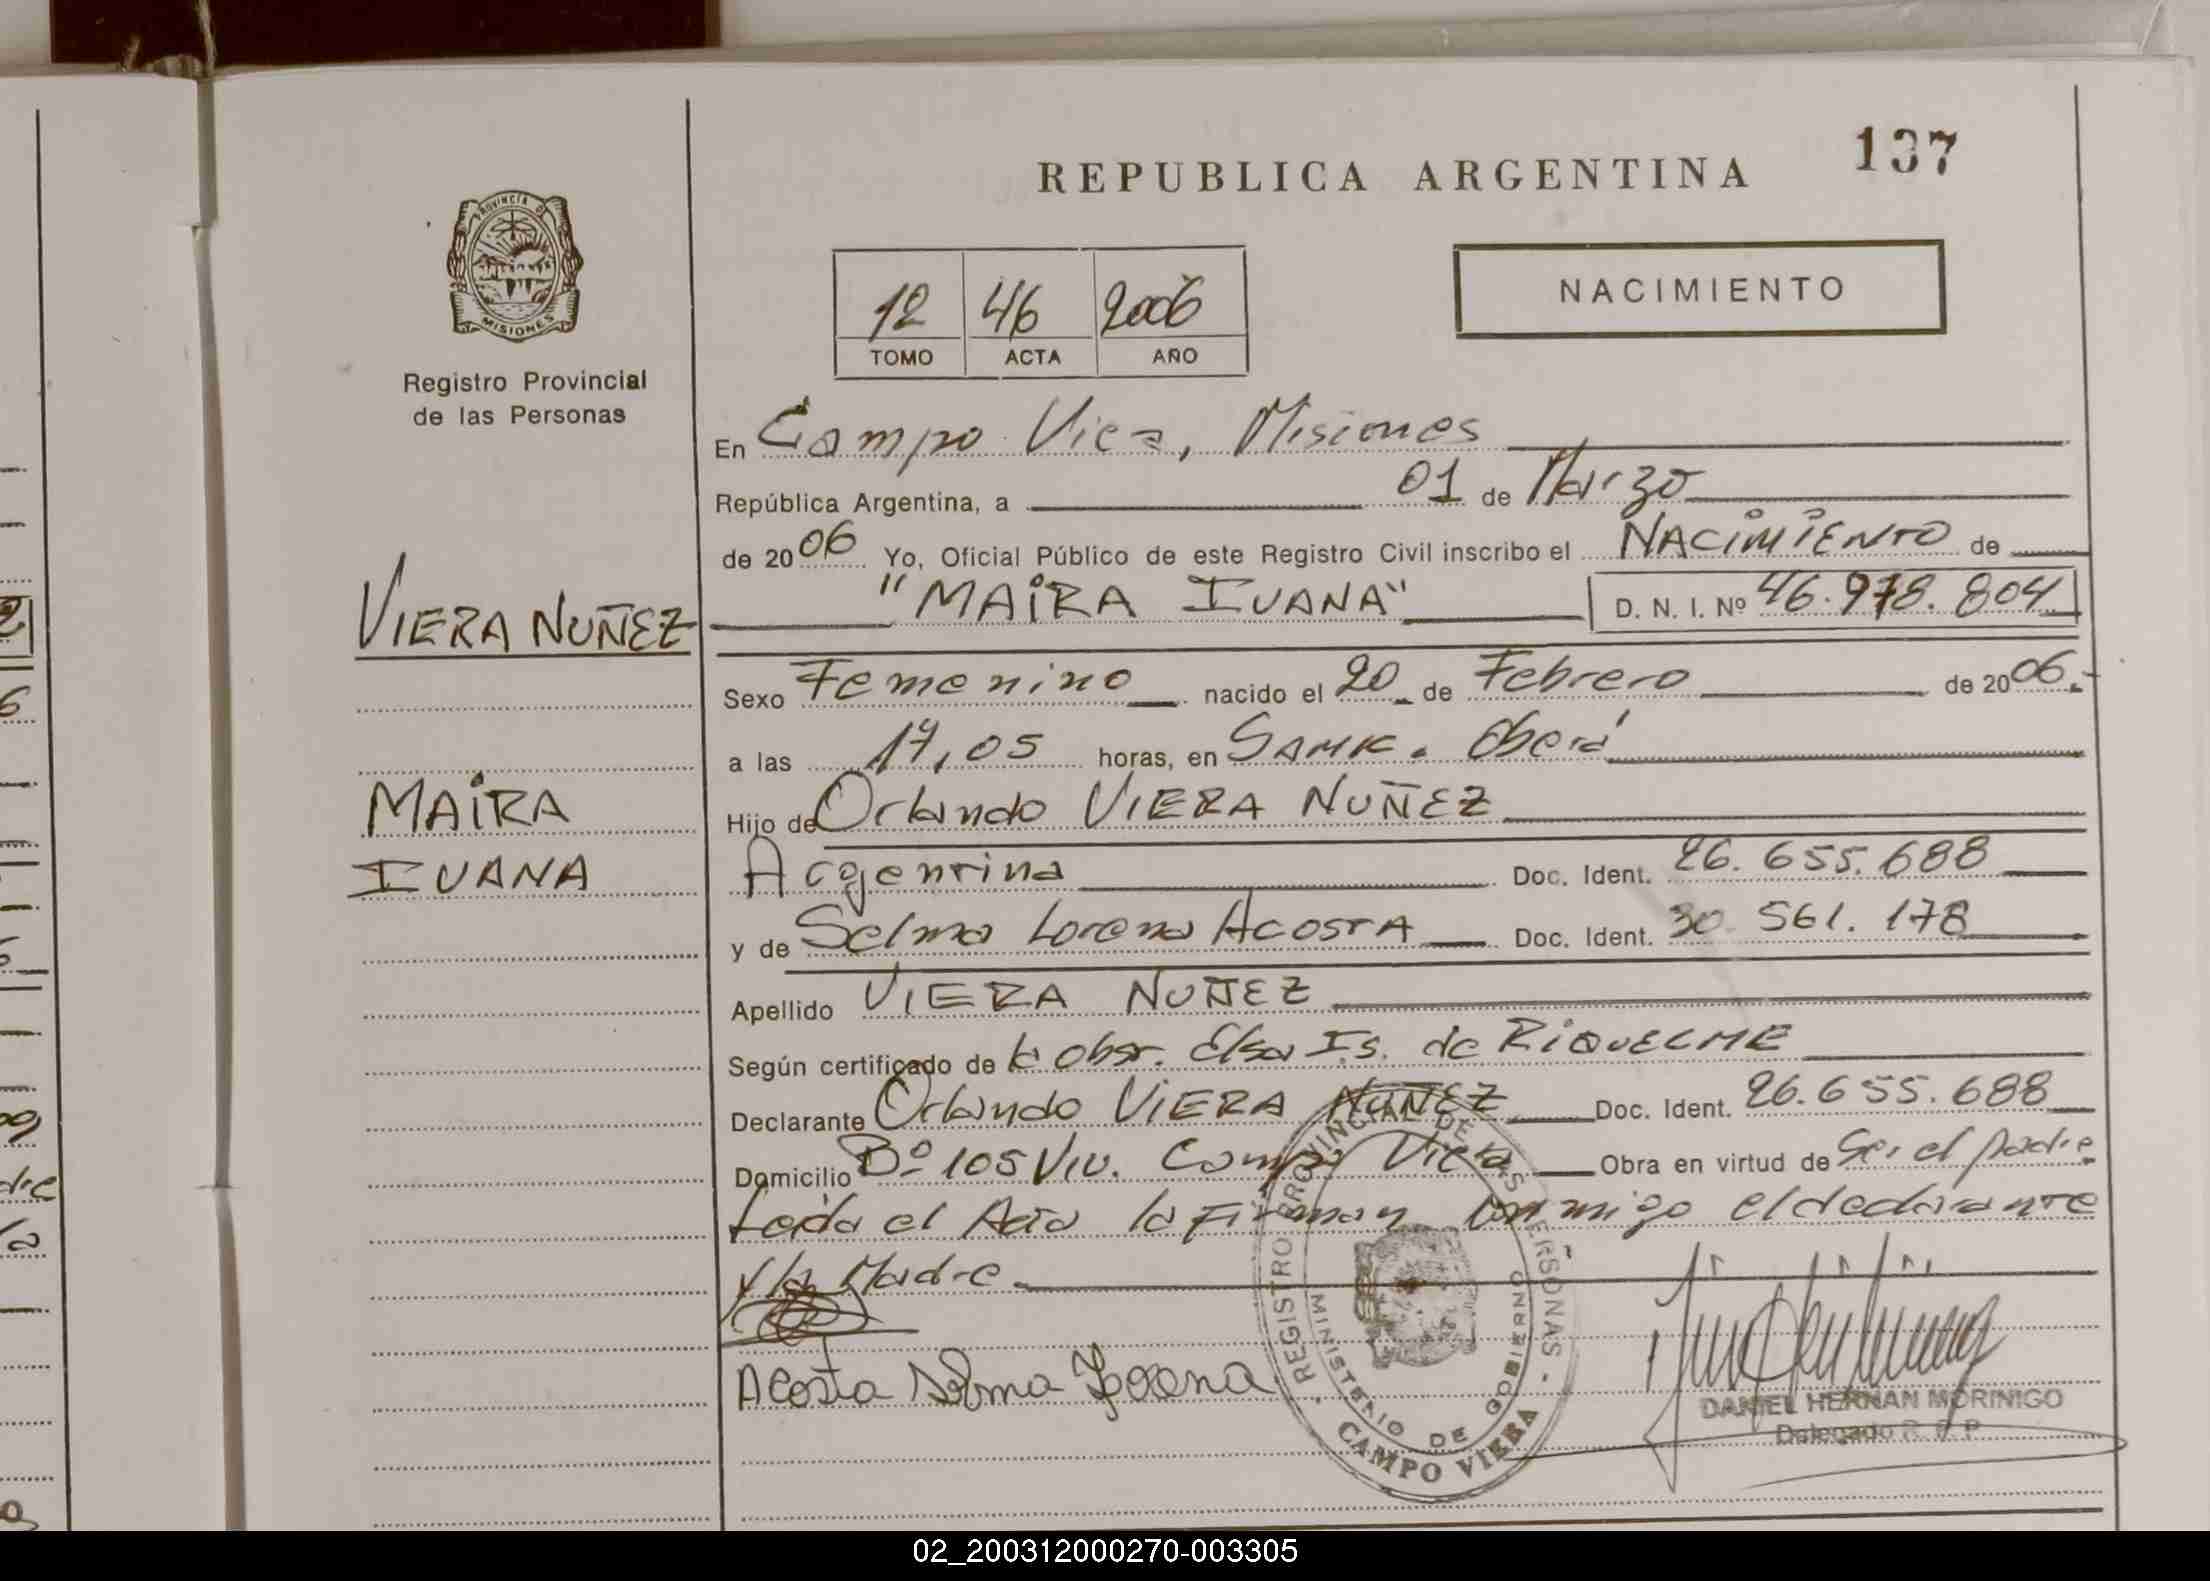 137
REPUBLICA ARGENTINA
PROVINCIA DE
MISIONES
Registro Provincial
de las Personas
12 46 2006
TOMO ACTA AÑO
NACIMIENTO
En Campo Viera, Misiones
República Argentina, a 01 de Marzo
de 2006 Yo, Oficial Público de este Registro Civil inscribo el NACIMIENTO de
VIERA NUÑEZ
"MAIRA IVANA" D. N. I. Nº 46.978.804
Sexo Femenino nacido el 20 de Febrero de 2006.-
a las 17,05 horas, en SAMK. Oberá
MAIRA
Hijo de Orlando VIERA NUÑEZ
IVANA
Argentina Doc. Ident. 26.655.688
y de Selma Lorena ACOSTA Doc. Ident. 30 561.178
Apellido VIERA NUÑEZ
Según certificado de la obst. Elsa I.S. de RIQUELME
Declarante Orlando VIERA NUÑEZ Doc. Ident. 26.655.688
Domicilio Bº 105 Viv. Campo Viera Obra en virtud de Ser el padre
Leida el Acta la Firman conmigo el declarante
y la Madre.
Acosta Selma Lorena
REGISTRO PROVINCIAL DE LAS PERSONAS -
MINISTERIO DE GOBIERNO
CAMPO VIERA
DANIEL HERNAN MORINIGO
Delegado R. P. P.
02_200312000270-003305